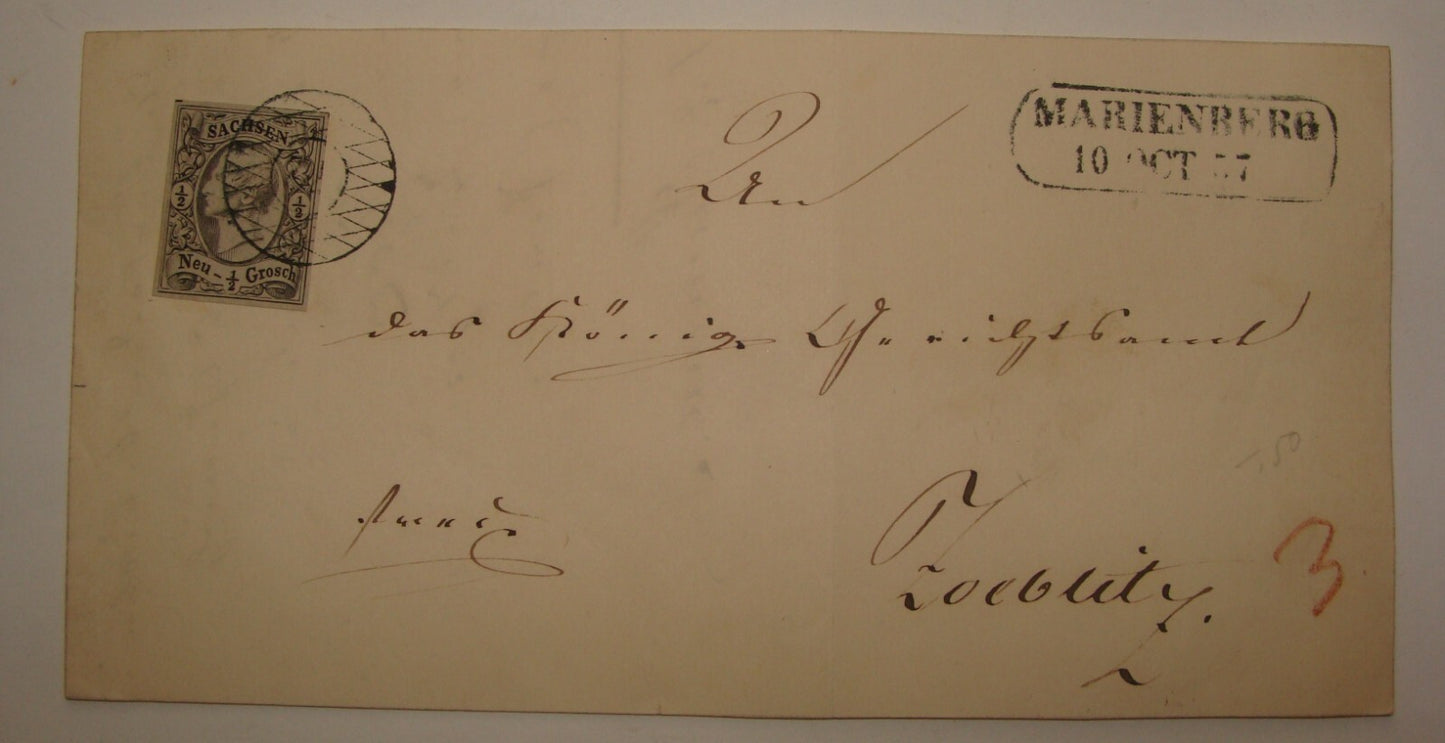 SACHSEN
½ ½
Neu-½ Grosch
MARIENBERG
10 OCT 57
An
das Königs Gerichtsamt
frei
Zoeblitz.
3